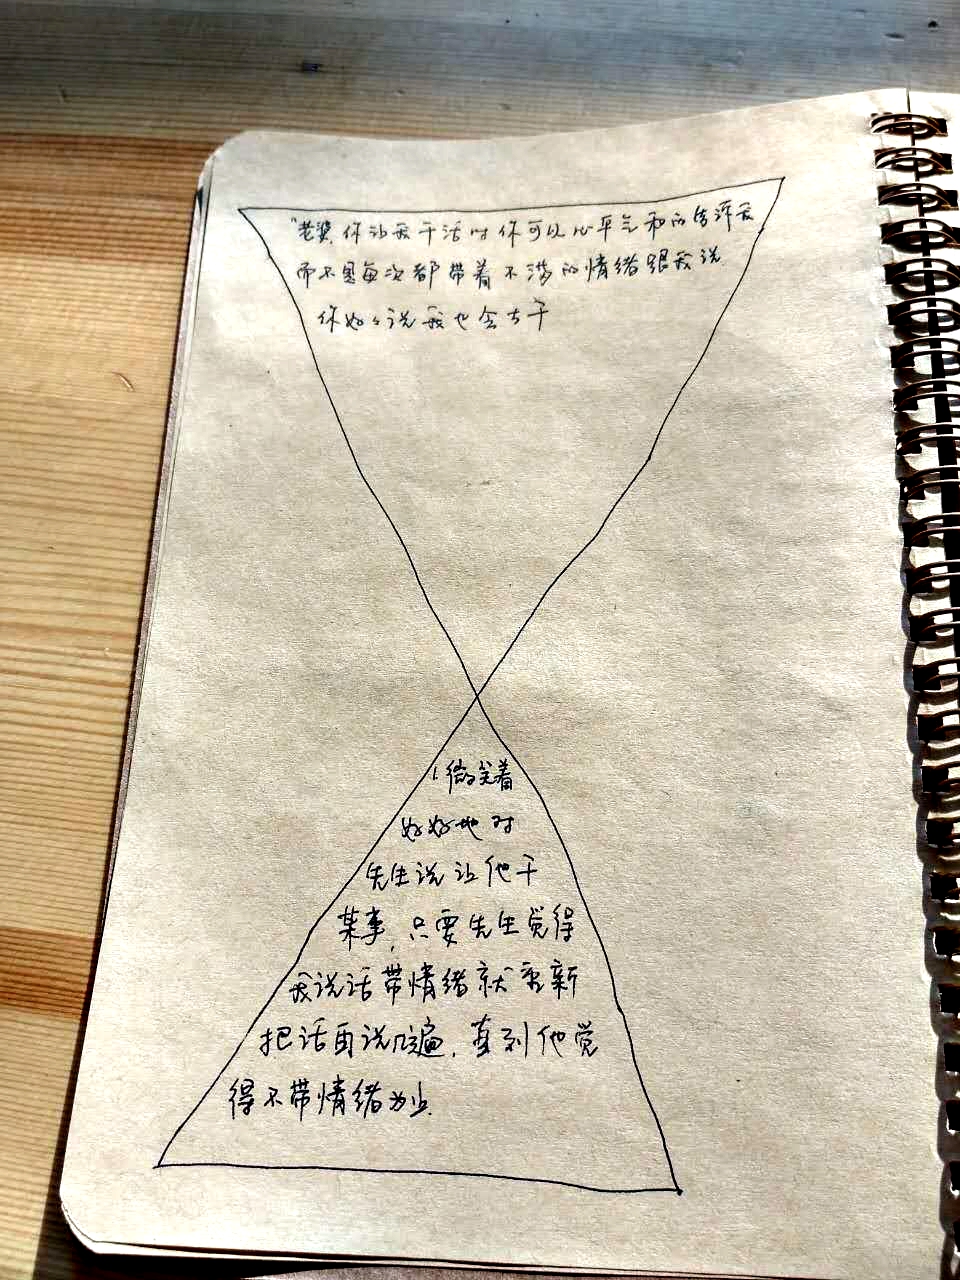 "老婆,你让我干活时你可以心平气和的告诉我
而不是每次都带着不满的情绪跟我说.
你好好说我也会去干
1.微笑着
好好地对
先生说让他干
某事,只要先生觉得
我说话带情绪就重新
把话再说几遍,直到他觉
得不带情绪为止.